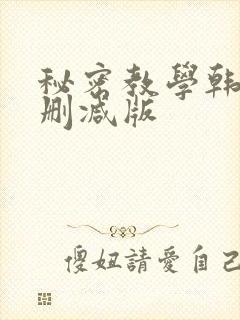 秘密教學韩
删减版
傻妞請愛自己